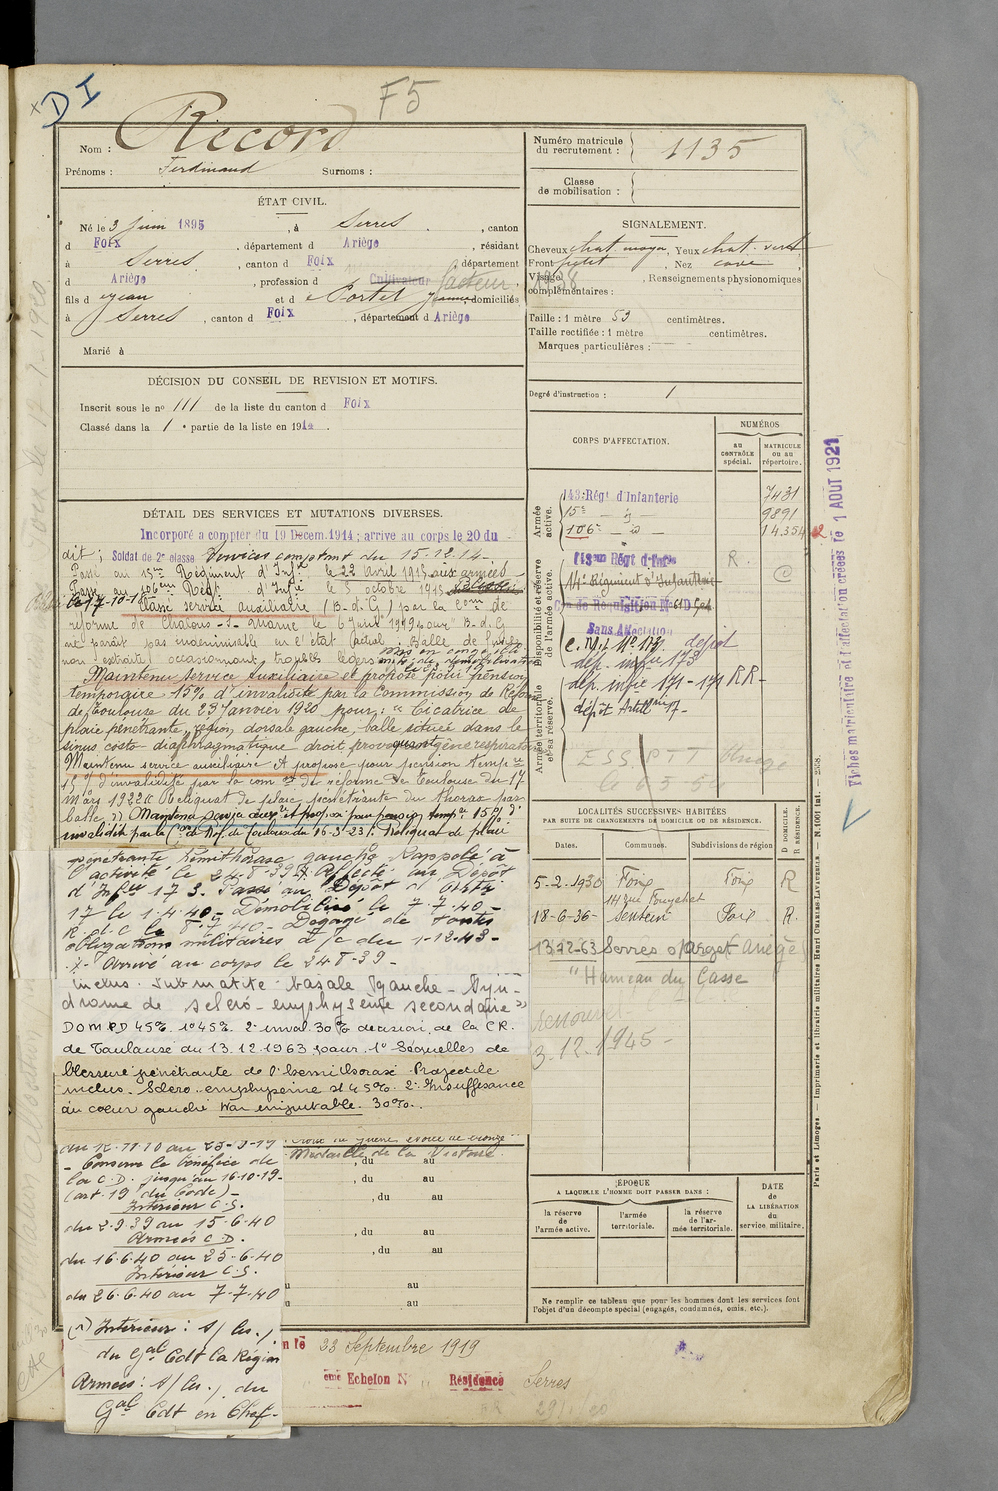 D I
F5
Nom : Record
Prénoms : Ferdinand Surnoms :
ÉTAT CIVIL.
Né le 3 juin 1895, à Serres, canton
d Foix, département d Ariège, résidant
à Serres, canton d Foix, département
d Ariège, profession d Cultivateur facteur
fils d Jean et d Portet Jeanne domiciliés
à Serres, canton d Foix, département d Ariège
Marié à
DÉCISION DU CONSEIL DE REVISION ET MOTIFS.
Inscrit sous le nº 111 de la liste du canton d Foix
Classé dans la 1e partie de la liste en 1914.
DÉTAIL DES SERVICES ET MUTATIONS DIVERSES.
Incorporé à compter du 19 Décem. 1914 ; arrivé au corps le 20 du
dit ; Soldat de 2e classe. Services comptant du 15.12.14.
Passé au 15me Régiment d'Infie le 22 avril 1915 aux armées
Passé au 106em Régt d'Infie le 5 octobre 1915
le 17-10-18 Classé service auxiliaire (B-d-G) par la Comon de
réforme de Chalons-s-Marne le 6 juin 1919 pour "B-d-G
ne parait pas indemnisable en l'état actuel. Balle de
non extraite, occasionnant troubles légers
Maintenu service auxiliaire et proposé pour pension
temporaire 15% d'invalidité par la Commission de Réforme
de Toulouse du 23 Janvier 1920 pour : "Cicatrice de
plaie pénétrante, région dorsale gauche, balle située dans le
sinus costo diaphragmatique droit provoquant gêne respiratoire
Maintenu service auxiliaire et proposé pour pension tempre
15% d'invalidité par la comon de réforme de Toulouse du 17
Mars 1922 "Reliquat de plaie pénétrante du thorax par
balle" Maintenu service auxre et proposé pour pension tempre 15% d'
invalidité par la Con de Réf. de Toulouse du 16-3-23 : Reliquat de plaie
pénétrante hémithorax gauche. Rappelé à
l'activité le 24-8-39. Affecté au Dépôt
d'Infie 173. Passé au Dépôt d'Artie
17 le 1.4.40. Démobilisé le 7.7.40-
R.d.C le 8.7.40. Dégagé de toutes
obligations militaires à/c du 1-12-43-
-/- Arrivé au corps le 24 8-39-
inclus. Submatité basale gauche - Syn-
drome de scléro-emphysème secondaire"
DOM PD 45% 1º 45% 2º inval. 30% décision de la CR.
de Toulouse du 13.12.1963 pour 1º Séquelles de
blessure pénétrante de l'hémithorax. Projectile
inclus. Scléro-emphysème 45%. 2º Insuffisance
du coeur gauche Non imputable. 30%.
- Conserve le bénéfice de
la C.D. jusqu'au 16-10-19-
(art. 19 du Code)-
Intérieur C.S.
du 2.9.39 au 15.6.40
Armées C.D.
du 16.6.40 au 25.6.40
Intérieur C.S.
du 26.6.40 au 7.7.40
(1) Intérieur : s/les./.
du Gal Cdt la Région
Armées : s/les./. du
Gal Cdt en Chef-
Croix de guerre étoile de bronze
Médaille de la Victoire.
, du au
, du au
, du au
, du au
au
au
23 Septembre 1919
eme Echelon N Résidence Serres
Numéro matricule du recrutement : 1135
Classe de mobilisation :
SIGNALEMENT.
Cheveux chat. moyen, Yeux chat. verd
Front petit, Nez cave,
Visage, Renseignements physionomiques
complémentaires :
Taille : 1 mètre 59 centimètres.
Taille rectifiée : 1 mètre centimètres.
Marques particulières :
Degré d'instruction : 1
CORPS D'AFFECTATION.
NUMÉROS
au CONTRÔLE spécial.
MATRICULE ou au répertoire.
Armée active.
143e Régt d'Infanterie 7431
15e - d° - 9891
106e - d° - 14354
Disponibilité et réserve de l'armée active.
Régt d'Infie R.
14e Régiment d'Infanterie
Con de Réquisition N° 61
Sans Affectation
C. Mob. Nº 173. dépôt
dép. infie 173
Armée territoriale et sa réserve.
dép. infie 171-171 RR-
dépôt Artillerie 17-
ESS. PTT Ariège
le 6 3-50
LOCALITÉS SUCCESSIVES HABITÉES
PAR SUITE DE CHANGEMENTS DE DOMICILE OU DE RÉSIDENCE.
Dates. Communes. Subdivisions de région D. DOMICILE. R. RÉSIDENCE.
5-2.1930 Foix Foix R
18-6-36- Sentein Foix R.
13-12-63 Serres s/Arget Ariège
" Hameau du Casse
3.12.1945-
ÉPOQUE
A LAQUELLE L'HOMME DOIT PASSER DANS :
la réserve de l'armée active.
l'armée territoriale.
la réserve de l'armée territoriale.
DATE de LA LIBÉRATION du service militaire.
Ne remplir ce tableau que pour les hommes dont les services font
l'objet d'un décompte spécial (engagés, condamnés, omis, etc.).
Fiches matriculaire et d'affectation créées le 1 AOUT 1921
Paris et Limoges. — Imprimerie et librairie militaires Henri CHARLES-LAVAUZELLE. — N. 1001 Int. — 2538.